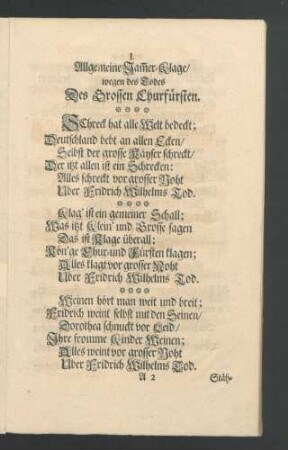 I.
Allgemeine Jam̃er-Klage/
wegen des Todes
Des Grossen Churfürsten.
SChreck hat alle Welt bedeckt;
Deutschland bebt an allen Ecken/
Selbst der grosse Käyser schreckt/
Der itzt allen ist ein Schrecken:
Alles schreckt vor grosser Noht
Uber Fridrich Wilhelms Tod.
Klag' ist ein gemeiner Schall;
Was itzt Klein' und Grosse sagen
Das ist Klage überall;
Kön'ge Chur-und Fürsten klagen;
Alles klagt vor grosser Noht
Uber Fridrich Wilhelms Tod.
Weinen hört man weit und breit;
Fridrich weint selbst mit den Seinen/
Dorothea schnuckt vor Leid/
Ihre fromme Kinder Weinen;
Alles weint vor grosser Noht
Uber Fridrich Wilhelms Tod.
A 2 Stäh-